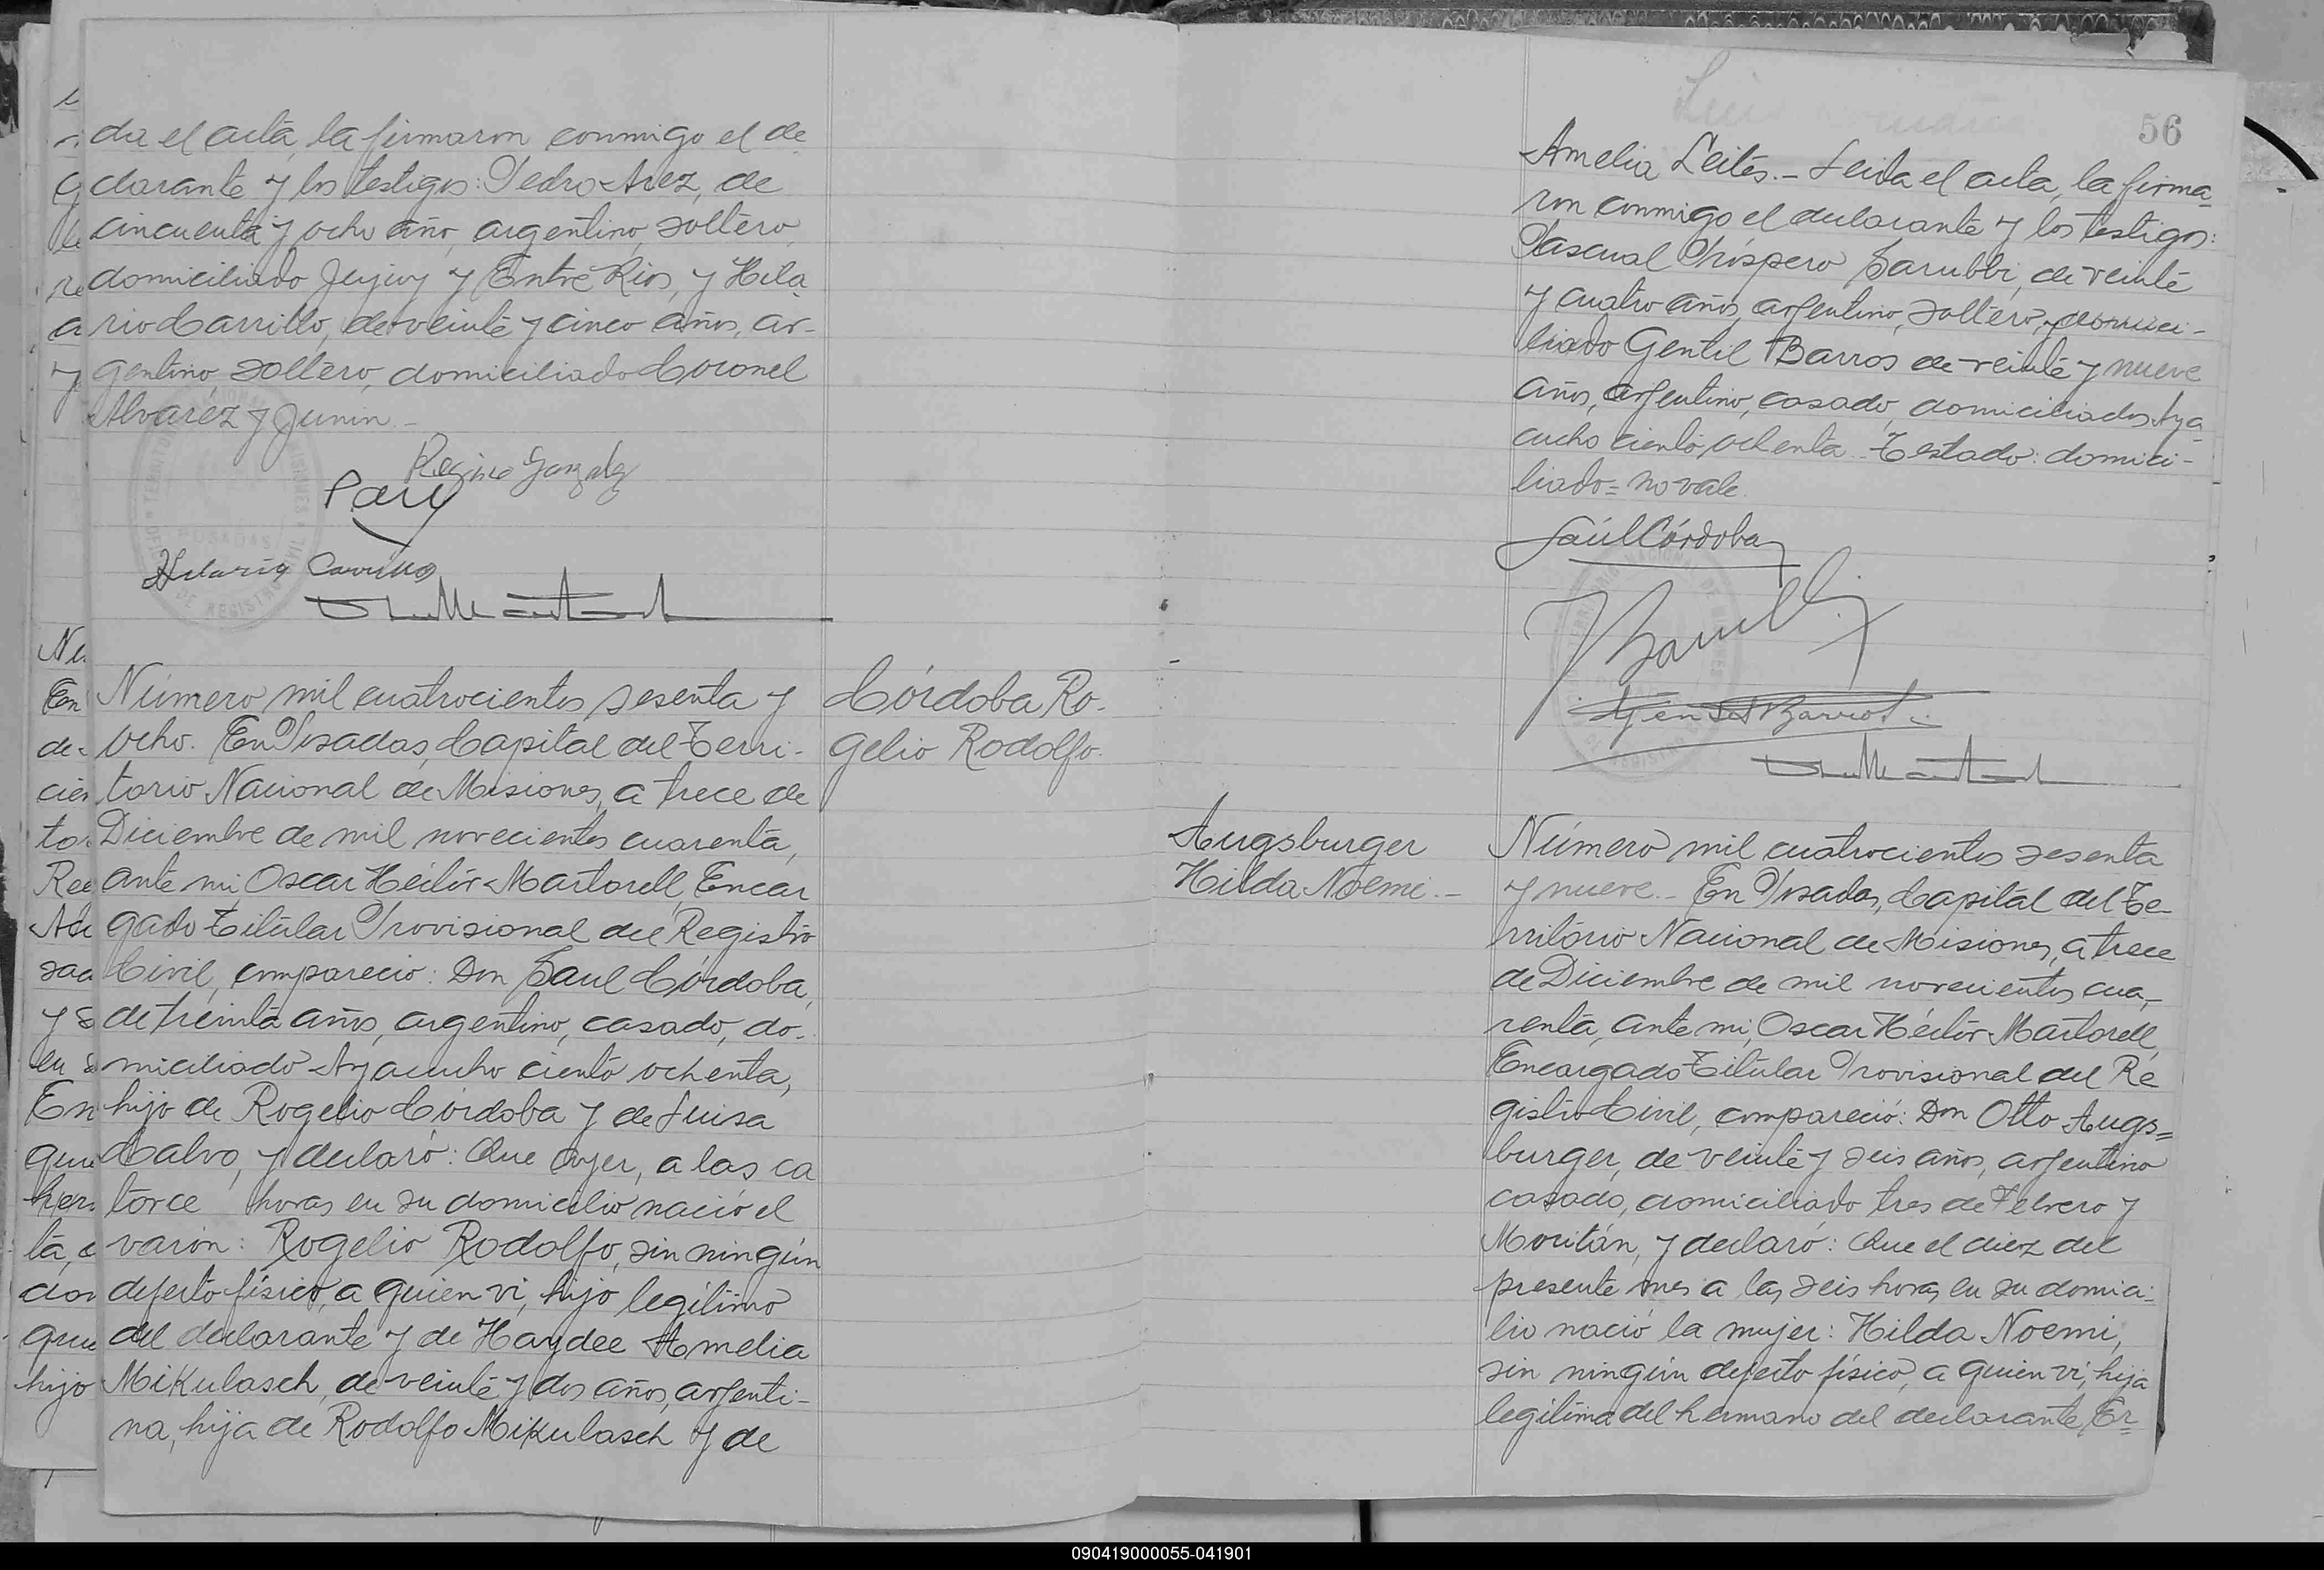 da el acta, la firmaron conmigo el de
clarante y los testigos: Pedro Arez, de
cincuenta y ocho año, argentino, soltero,
domiciliado Jujuy y Entre Rios, y Hila
rio Carrillo, de veinte y cinco años, ar-
gentino, soltero, domiciliado Coronel
Alvarez y Junin.-
Regino Gonzalez
Hilario Carrillo
POSADAS
Córdoba Ro-
gelio Rodolfo.
Número mil cuatrocientos sesenta y
ocho. En Posadas, Capital del Terri-
torio Nacional de Misiones, a trece de
Diciembre de mil novecientos cuarenta,
ante mi, Oscar Héctor Martorell, Encar
gado Titular Provisional del Registro
Civil, compareció: Don Saul Córdoba,
de treinta años, argentino, casado, do-
miciliado Ayacucho ciento ochenta,
hijo de Rogelio Córdoba y de Luisa
Calvo, y declaró: Que ayer, a las ca
torce horas en su domicilio nació el
varón: Rogelio Rodolfo, sin ningún
defecto físico, a quien vi, hijo legítimo
del declarante y de Haydee Amelia
Mikulasch, de veinte y dos años, argenti-
na, hija de Rodolfo Mikulasch y de
56
Amelia Leites.- Leida el acta, la firma-
ron conmigo el declarante y los testigos:
Pascual Próspero Sarubbi, de veinte
y cuatro años, argentino, soltero, y domici-
liado Gentil Barros de veinte y nueve
años, argentino, casado, domiciliados Aya-
cucho ciento ochenta.- Testado: domici-
liado= no vale.
Saúl Córdoba
Gentil Barros
Augsburger
Hilda Noemi.-
Número mil cuatrocientos sesenta
y nueve.- En Posadas, Capital del Te-
rritorio Nacional de Misiones, a trece
de Diciembre de mil novecientos cua-
renta, ante mi, Oscar Héctor Martorell,
Encargado Titular Provisional del Re
gistro Civil, compareció: Don Otto Augs=
burger, de veinte y seis años, argentino
casado, domiciliado tres de Febrero y
Moritán, y declaró: Que el diez del
presente mes a las seis horas en su domici-
lio nació la mujer: Hilda Noemi,
sin ningún defecto físico, a quien vi, hija
legítima del hermano del declarante, Er=
090419000055-041901